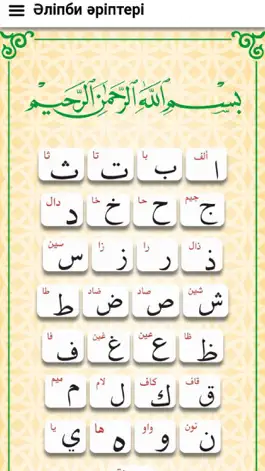 Әліпби әріптері
بِسْمِ اللَّهِ الرَّحْمَٰنِ الرَّحِيمِ
الف ا با ب تا ت ثا ث
جيم ج حا ح خا خ دال د
ذال ذ را ر زا ز سين س
شين ش صاد ص ضاد ض طا ط
ظا ظ عين ع غين غ فا ف
قاف ق كاف ك لام ل ميم م
نون ن واو و ها ه يا ي